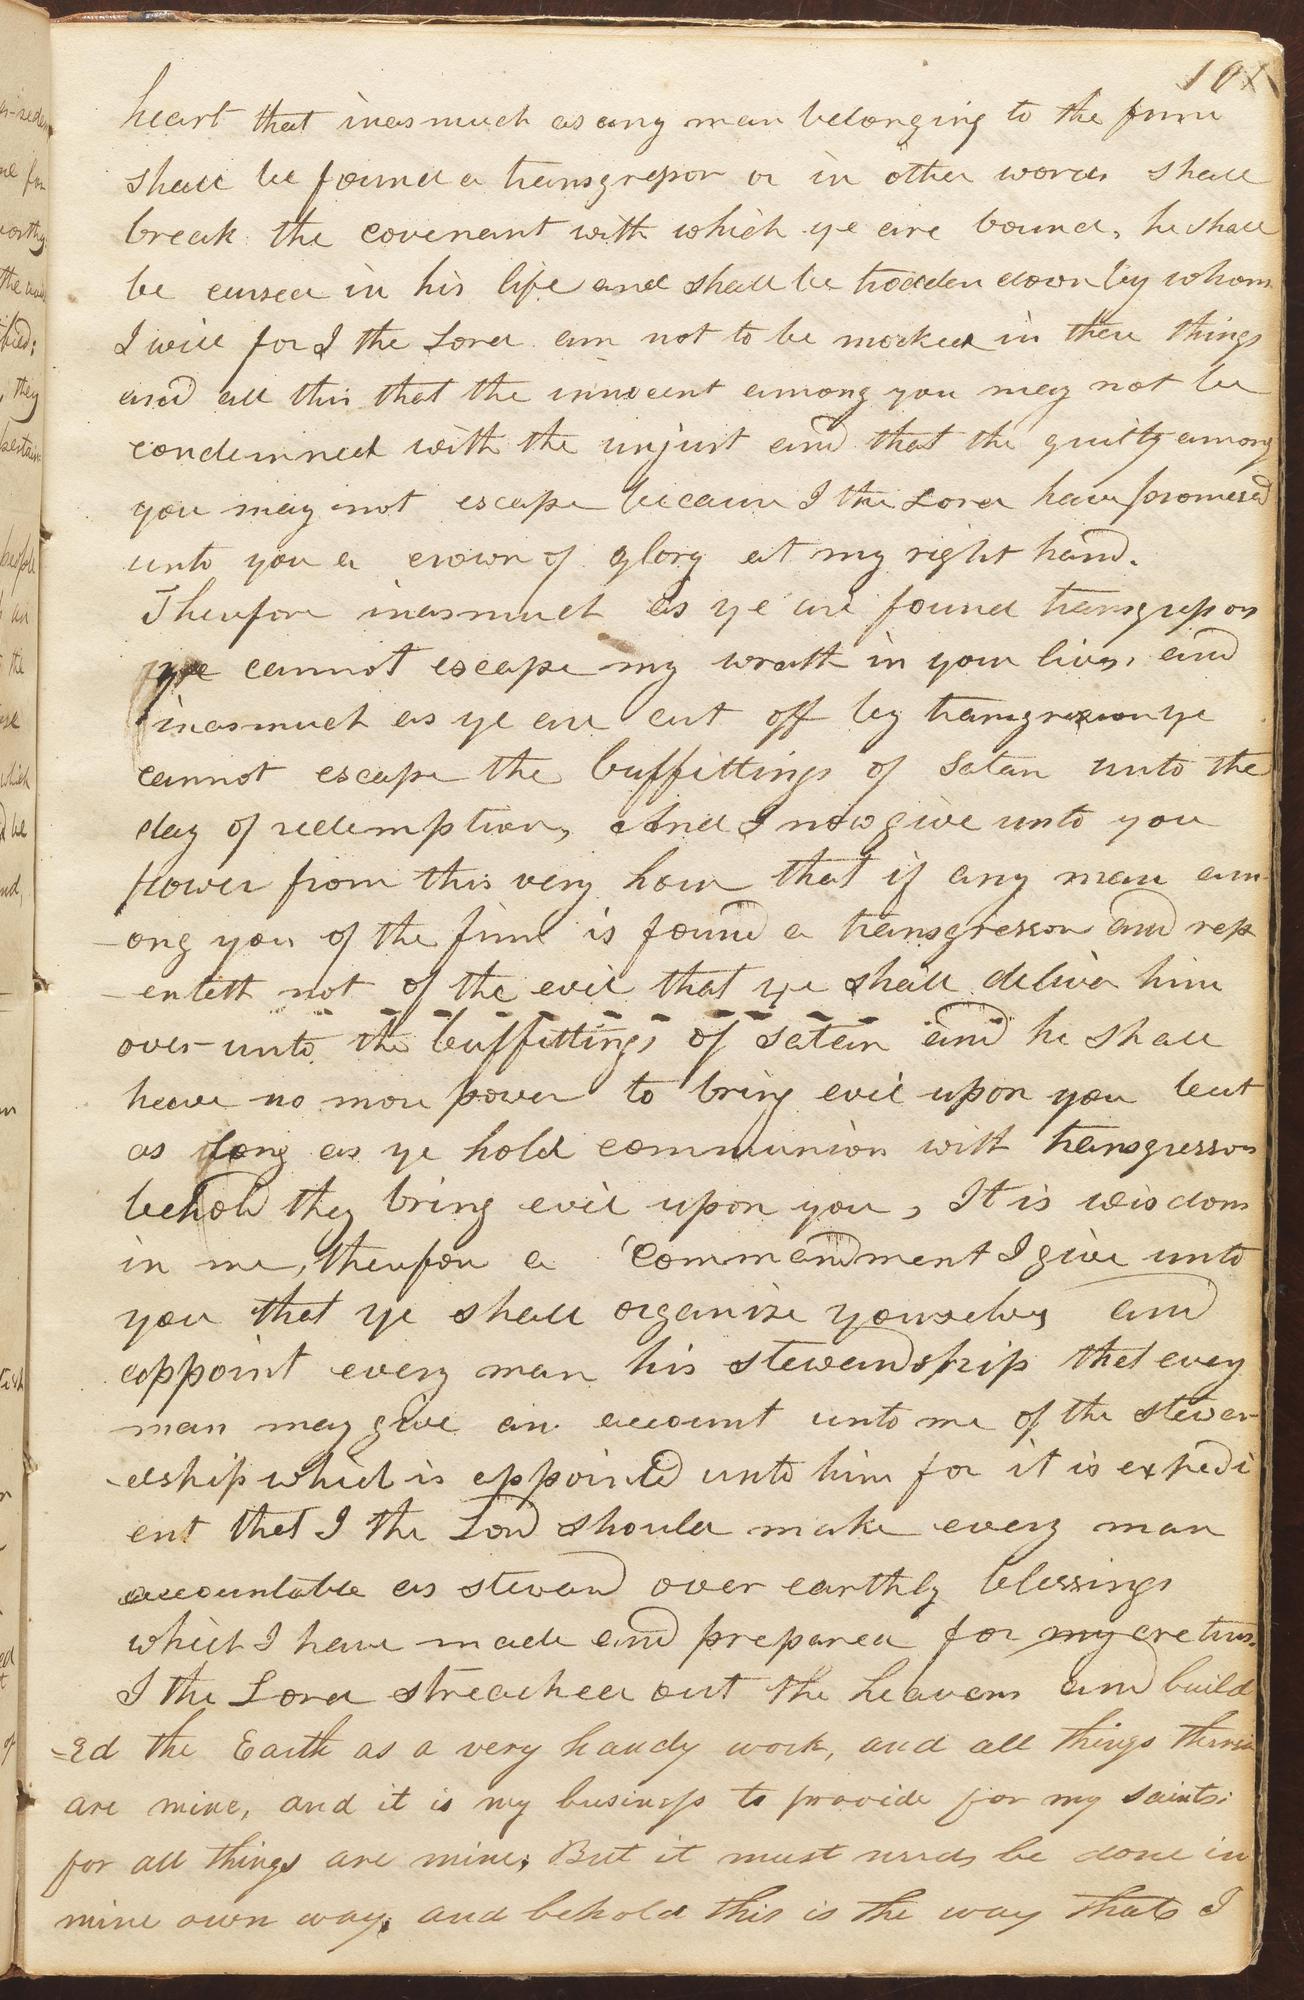 101
heart that inasmuch as any man belonging to the firm
shall be found a transgressor or in other words shall
break the covenant with which ye are bound, he shall
be cursed in his life and shall be trodden down by whom
I will for I the Lord am not to be mocked in these things
and all this that the innocent among you may not be
condemned with the unjust and that the guilty among
you may not escape because I the Lord have promised
unto you a crown of glory at my right hand.
Therefore inasmuch as ye are found transgressors
ye cannot escape my wrath in your lives, and
inasmuch as ye are cut off by transgression ye
cannot escape the buffittings of Satan unto the
day of redemption, And I now give unto you
power from this very hour that if any man am-
-ong you of the firm is found a transgressor and rep
-enteth not of the evil that ye shall deliver him
over unto the buffittings of Satan and he shall
have no more power to bring evil upon you but
as long as ye hold communion with transgressors
behold they bring evil upon you, It is wisdom
in me, therefore a commandment I give unto
you that ye shall organize yourselves and
appoint every man his stewardship that every
man may give an account unto me of the stewar-
-dship which is appointed unto him for it is expedi
ent that I the Lord should make every man
accountable as steward over earthly blessings
which I have made and prepared for my cretures.
I the Lord streached out the heavens and build
-ed the Earth as a very handy work, and all things therein
are mine, and it is my business to provide for my saints;
for all things are mine; But it must needs be done in
mine own way; and behold this is the way that I